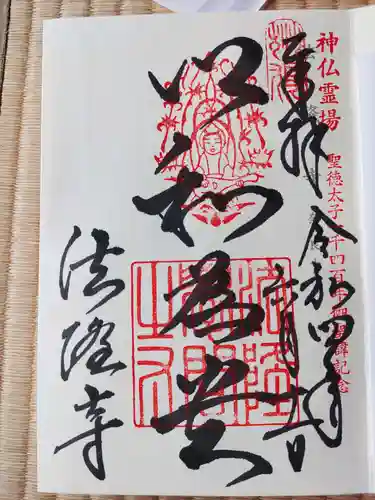 神仏霊場
聖徳太子一千四百年御聖諱記念
奉拝
令和四年
六月
以和為貴
法隆寺